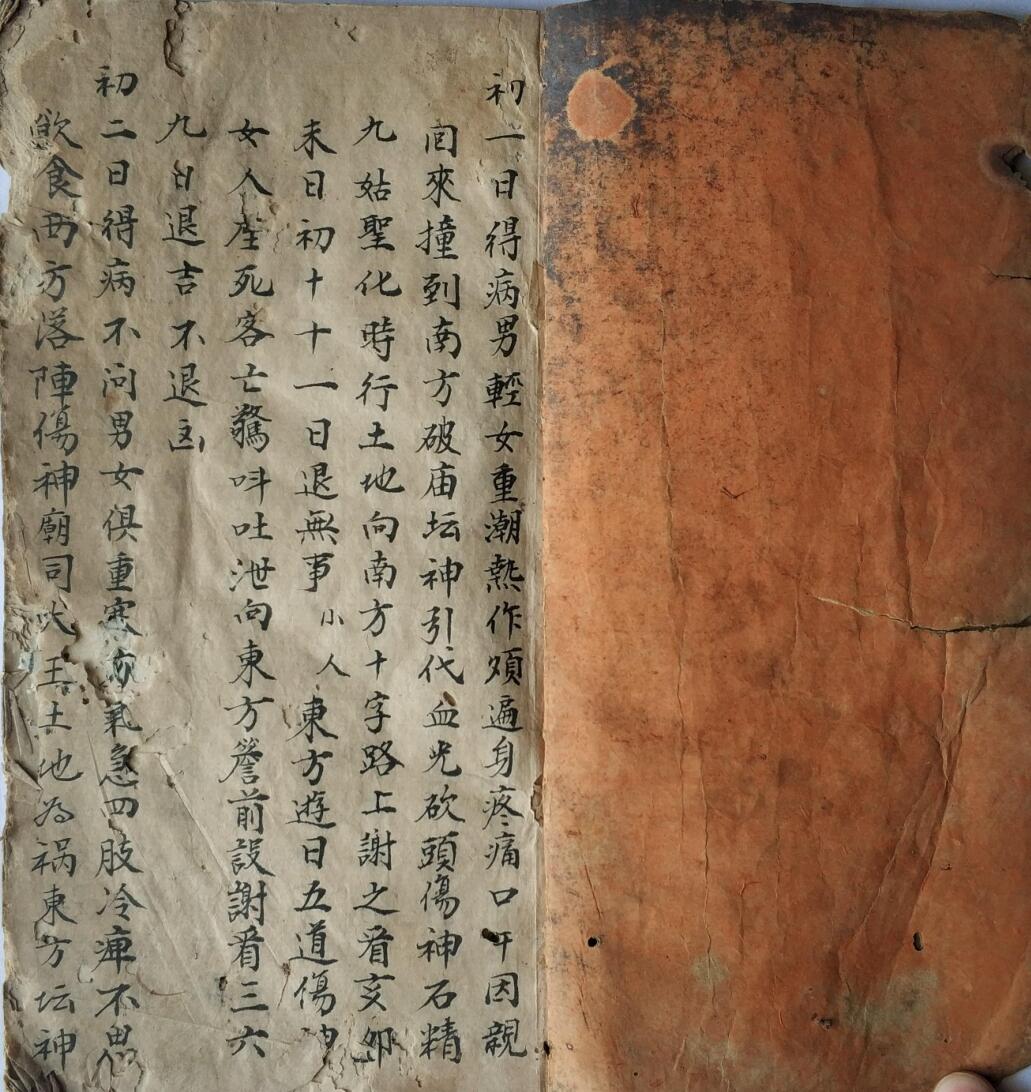 初一日得病男輕女重潮熱作煩遍身疼痛口干因親
回來撞到南方破庙坛神引代血光砍頭傷神石精
九姑聖化時行土地向南方十字路上謝之看亥卯
未日初十十一日退無事小人東方遊日五道傷
女人産死客亡驚呌吐泄向東方簷前設謝看三六
九日退吉不退凶
初二日得病不问男女俱重寒氣急四肢冷痺不思
飲食西方落陣傷神廟司大王土地為禍東方坛神